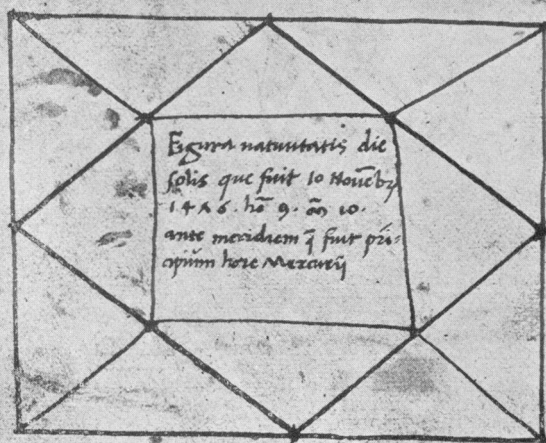 Figura natiuitatis die
solis que fuit 10 Nouēbr
1476. hō 9. 10.
ante meridiem q̄ fuit prī=
cipium hore Mercurij